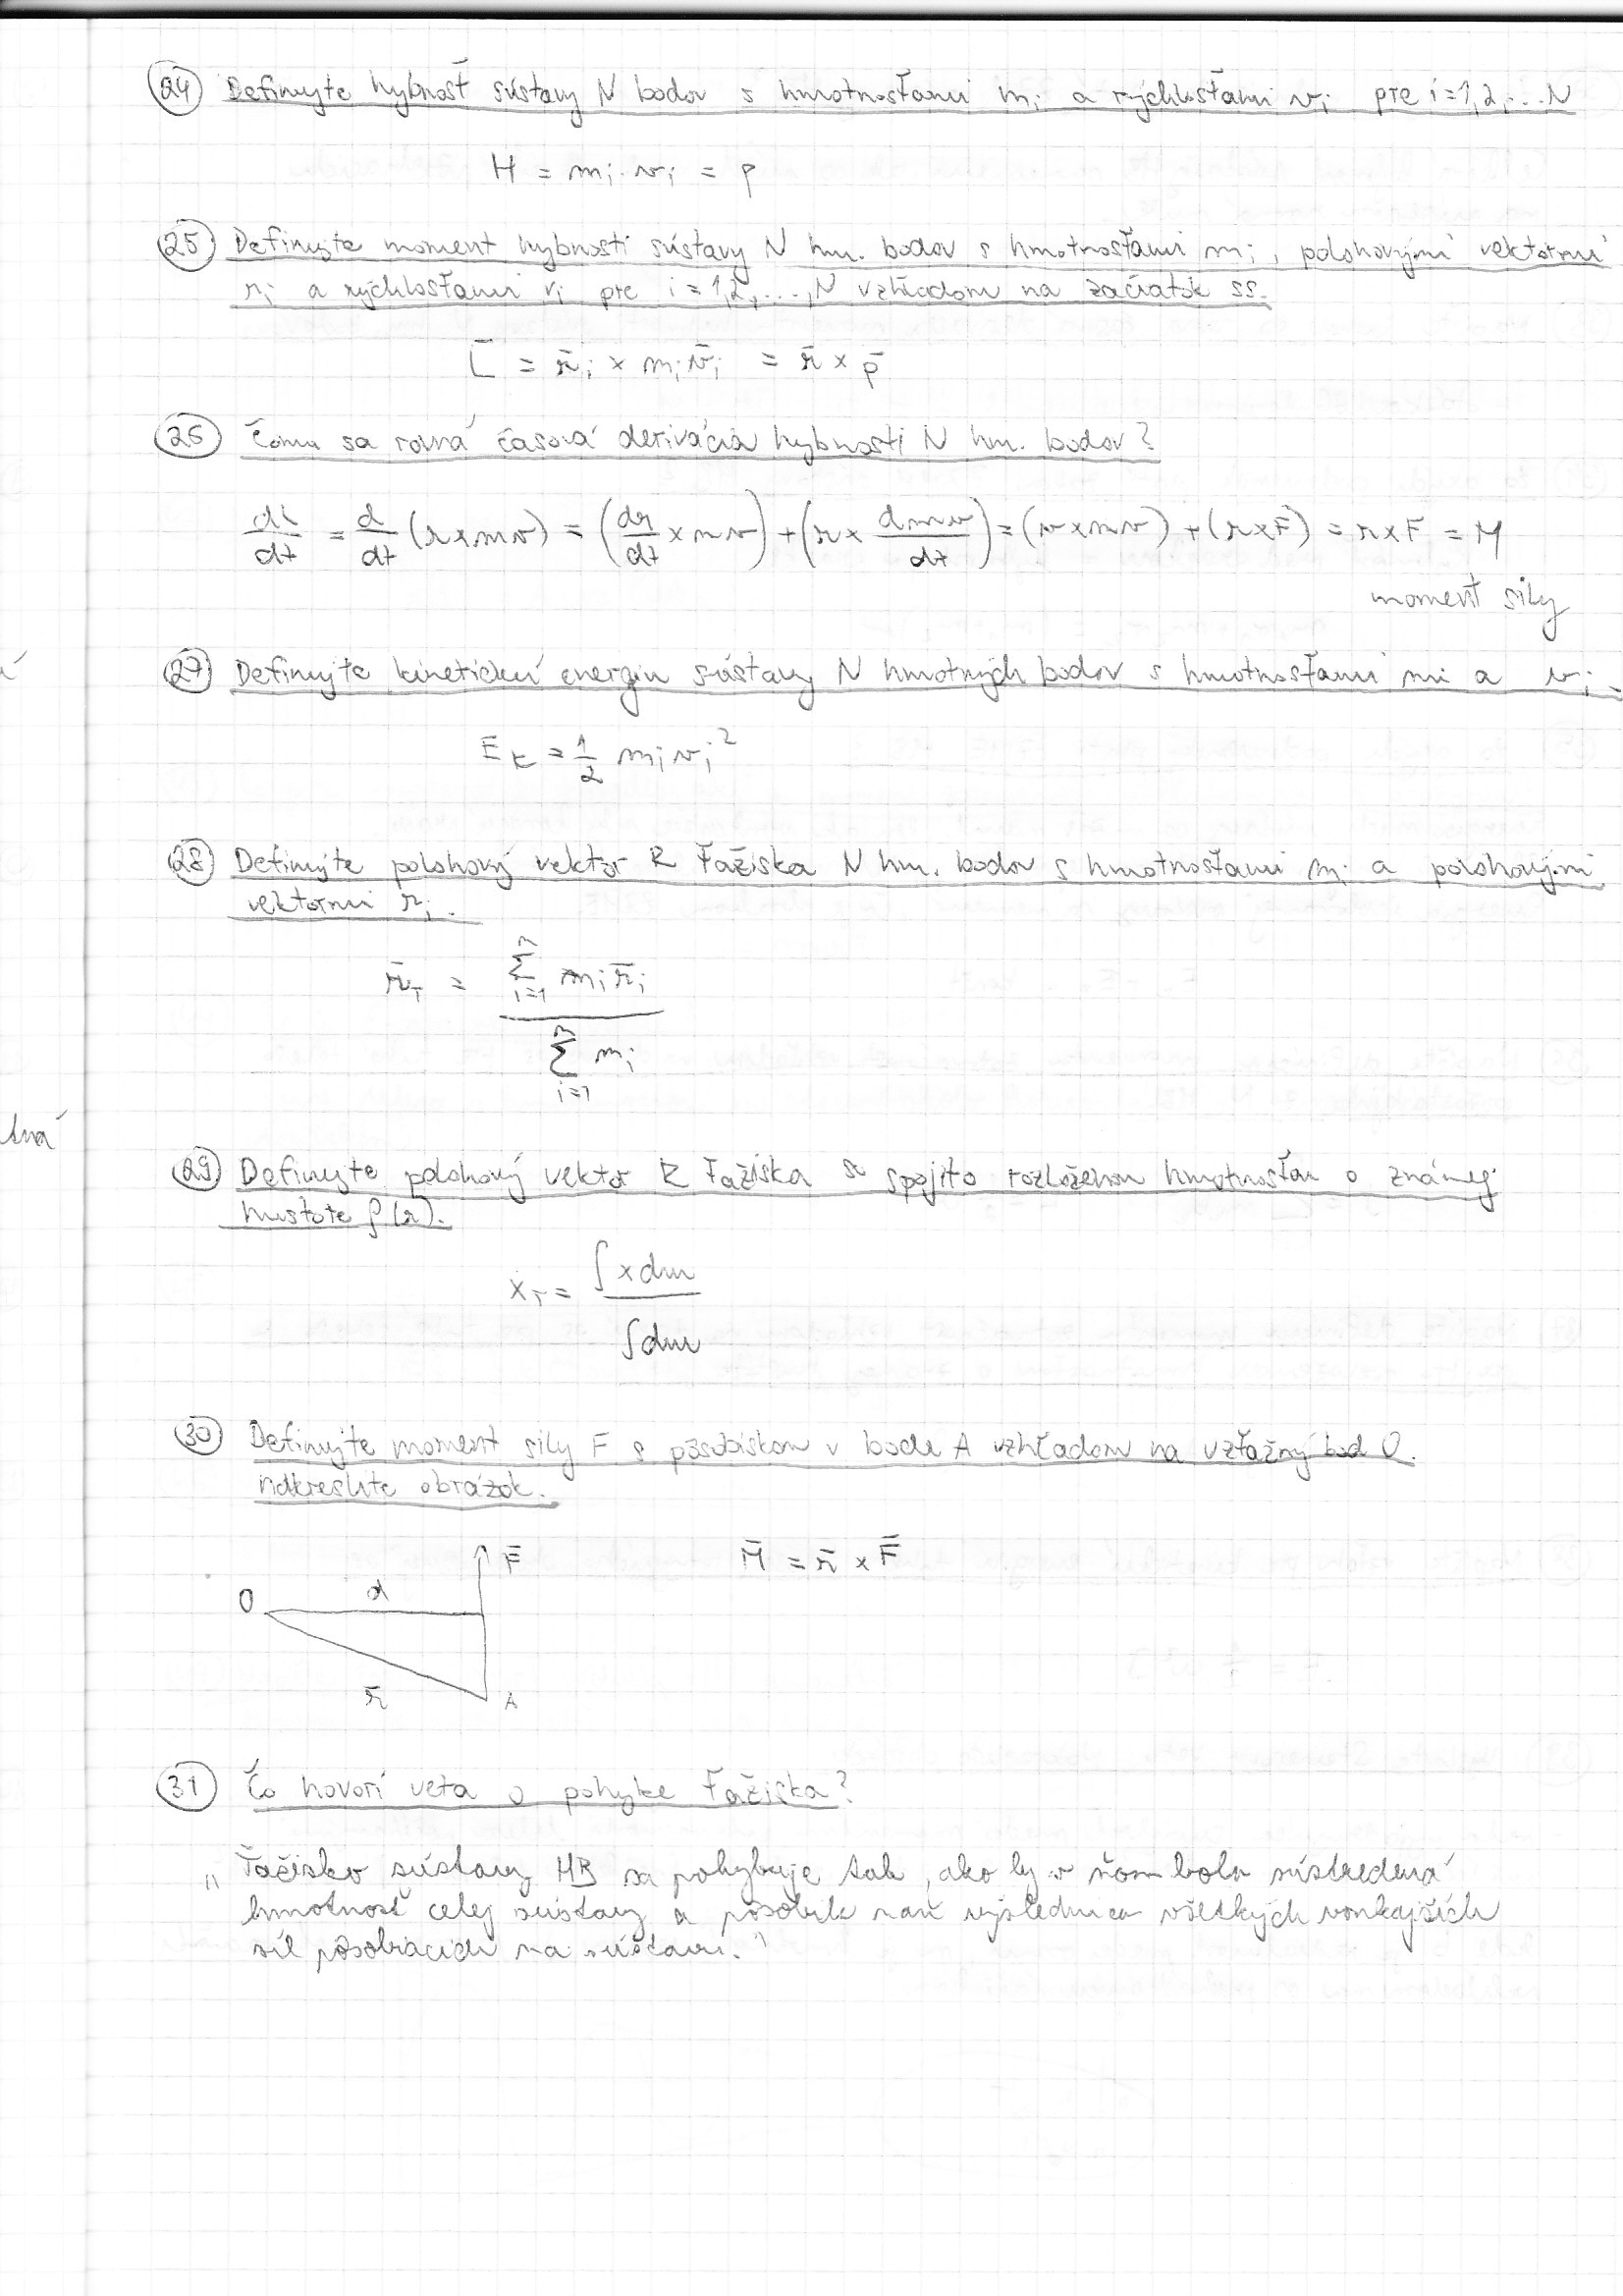 24 Definujte hybnosť sústavy N bodov s hmotnosťami mᵢ a rýchlosťami vᵢ pre i=1,2,...N
H = mᵢ.vᵢ = p
25 Definujte moment hybnosti sústavy N hm. bodov s hmotnosťami mᵢ, polohovými vektormi
rᵢ a rýchlosťami vᵢ pre i=1,2,...,N vzhľadom na začiatok SS.
L̄ = r̄ᵢ × mᵢv̄ᵢ = r̄ × p̄
26 Čomu sa rovná časová derivácia hybnosti N hm. bodov?
dL/dt = d/dt (r×mv) = (dr/dt × mv) + (r× dmv/dt) = (v×mv) + (r×F) = r×F = M
moment sily
27 Definujte kinetickú energiu sústavy N hmotných bodov s hmotnosťami mi a vᵢ.
Eₖ = 1/2 mᵢvᵢ²
28 Definujte polohový vektor R ťažiska N hm. bodov s hmotnosťami mᵢ a polohovými
vektormi rᵢ.
r̄_T = Σ_{i=1}^{n} mᵢr̄ᵢ / Σ_{i=1}^{n} mᵢ
tná
29 Definujte polohový vektor R ťažiska so spojito rozloženou hmotnosťou o známej
hustote ρ(r).
x_T = ∫x dm / ∫dm
30 Definujte moment sily F s pôsobiskom v bode A vzhľadom na vzťažný bod O.
nakreslite obrázok.
F̄
M̄ = r̄ × F̄
O
d
r̄
A
31 Čo hovorí veta o pohybe ťažiska?
„Ťažisko sústavy HB sa pohybuje tak, ako by v ňom bola sústredená
hmotnosť celej sústavy a pôsobila naň výslednica všetkých vonkajších
síl pôsobiacich na sústavu."